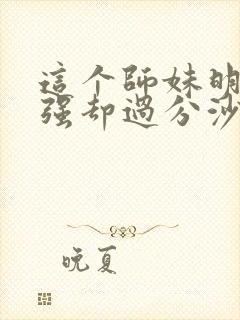 這个師妹明
强却過分沙
晚夏